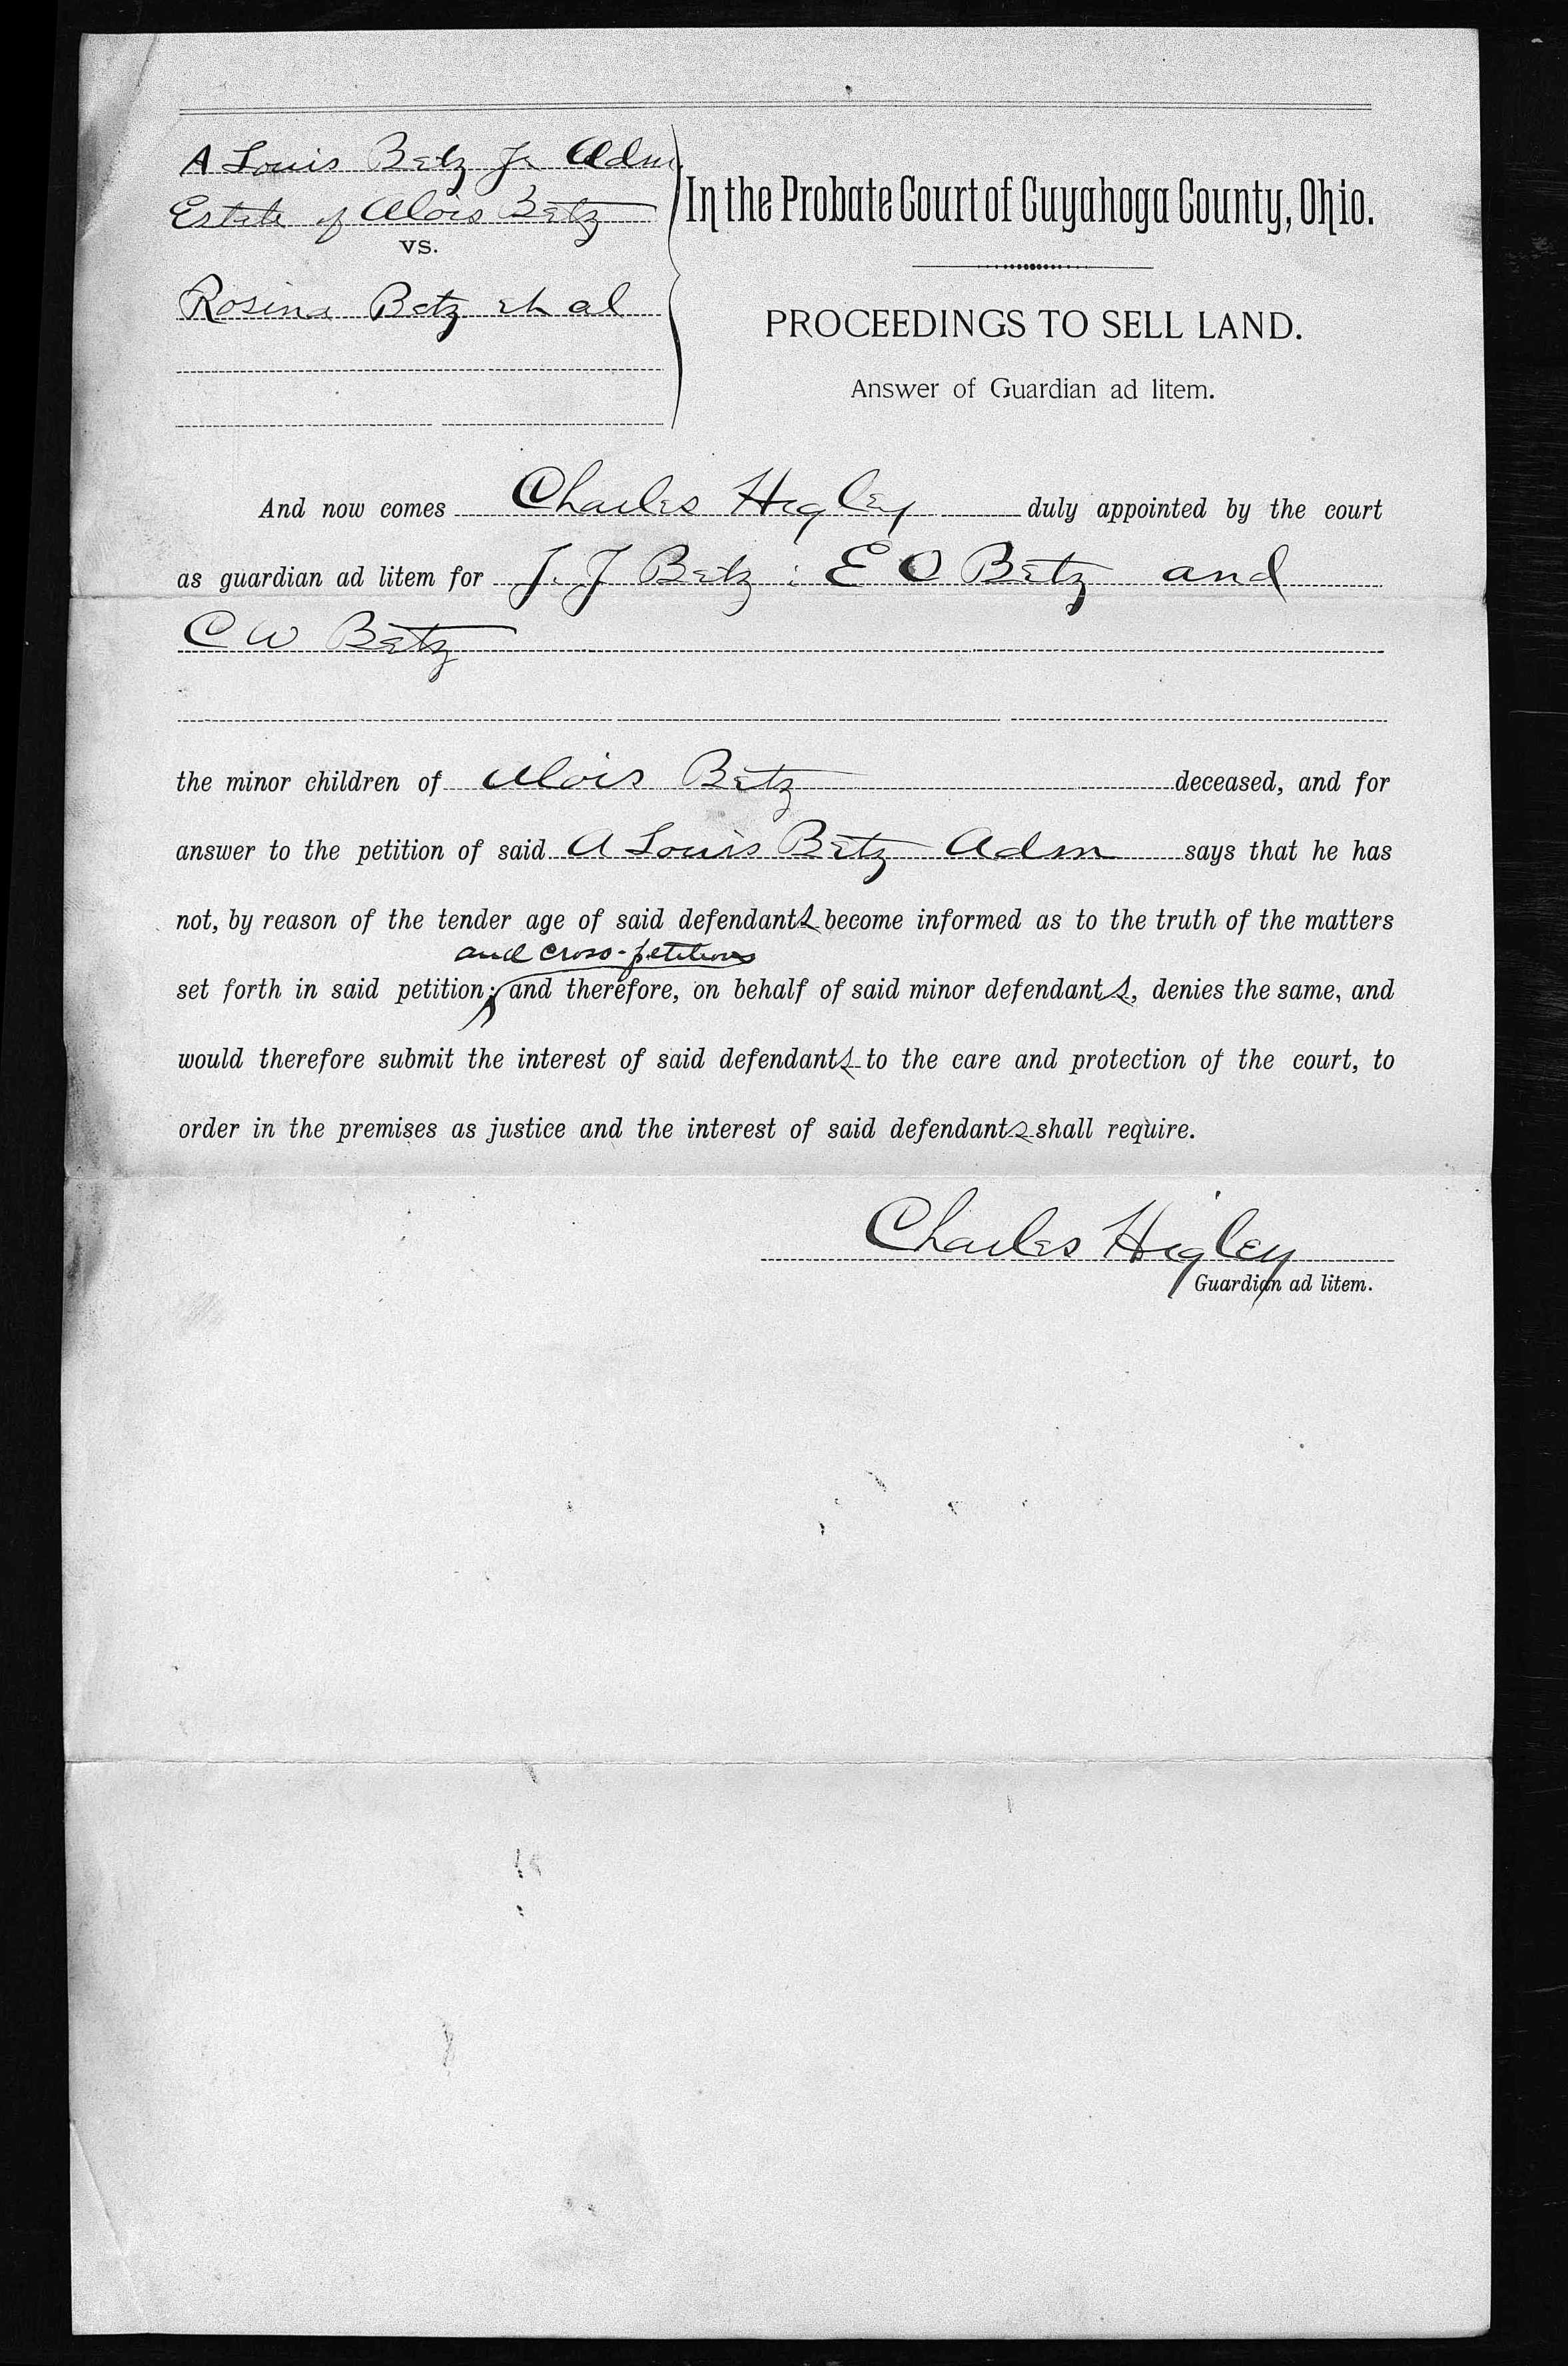 A Louis Betz Jr Adm.
Estate of Alois Betz
vs.
Rosina Betz et al
In the Probate Court of Cuyahoga County, Ohio.
PROCEEDINGS TO SELL LAND.
Answer of Guardian ad litem.
And now comes Charles Higley duly appointed by the court
as guardian ad litem for J. J Betz : E O Betz and
C W Betz
the minor children of Alois Betz deceased, and for
answer to the petition of said A Louis Betz Adm says that he has
not, by reason of the tender age of said defendants become informed as to the truth of the matters
and cross-petitions
set forth in said petition; and therefore, on behalf of said minor defendants, denies the same, and
would therefore submit the interest of said defendants to the care and protection of the court, to
order in the premises as justice and the interest of said defendants shall require.
Charles Higley
Guardian ad litem.